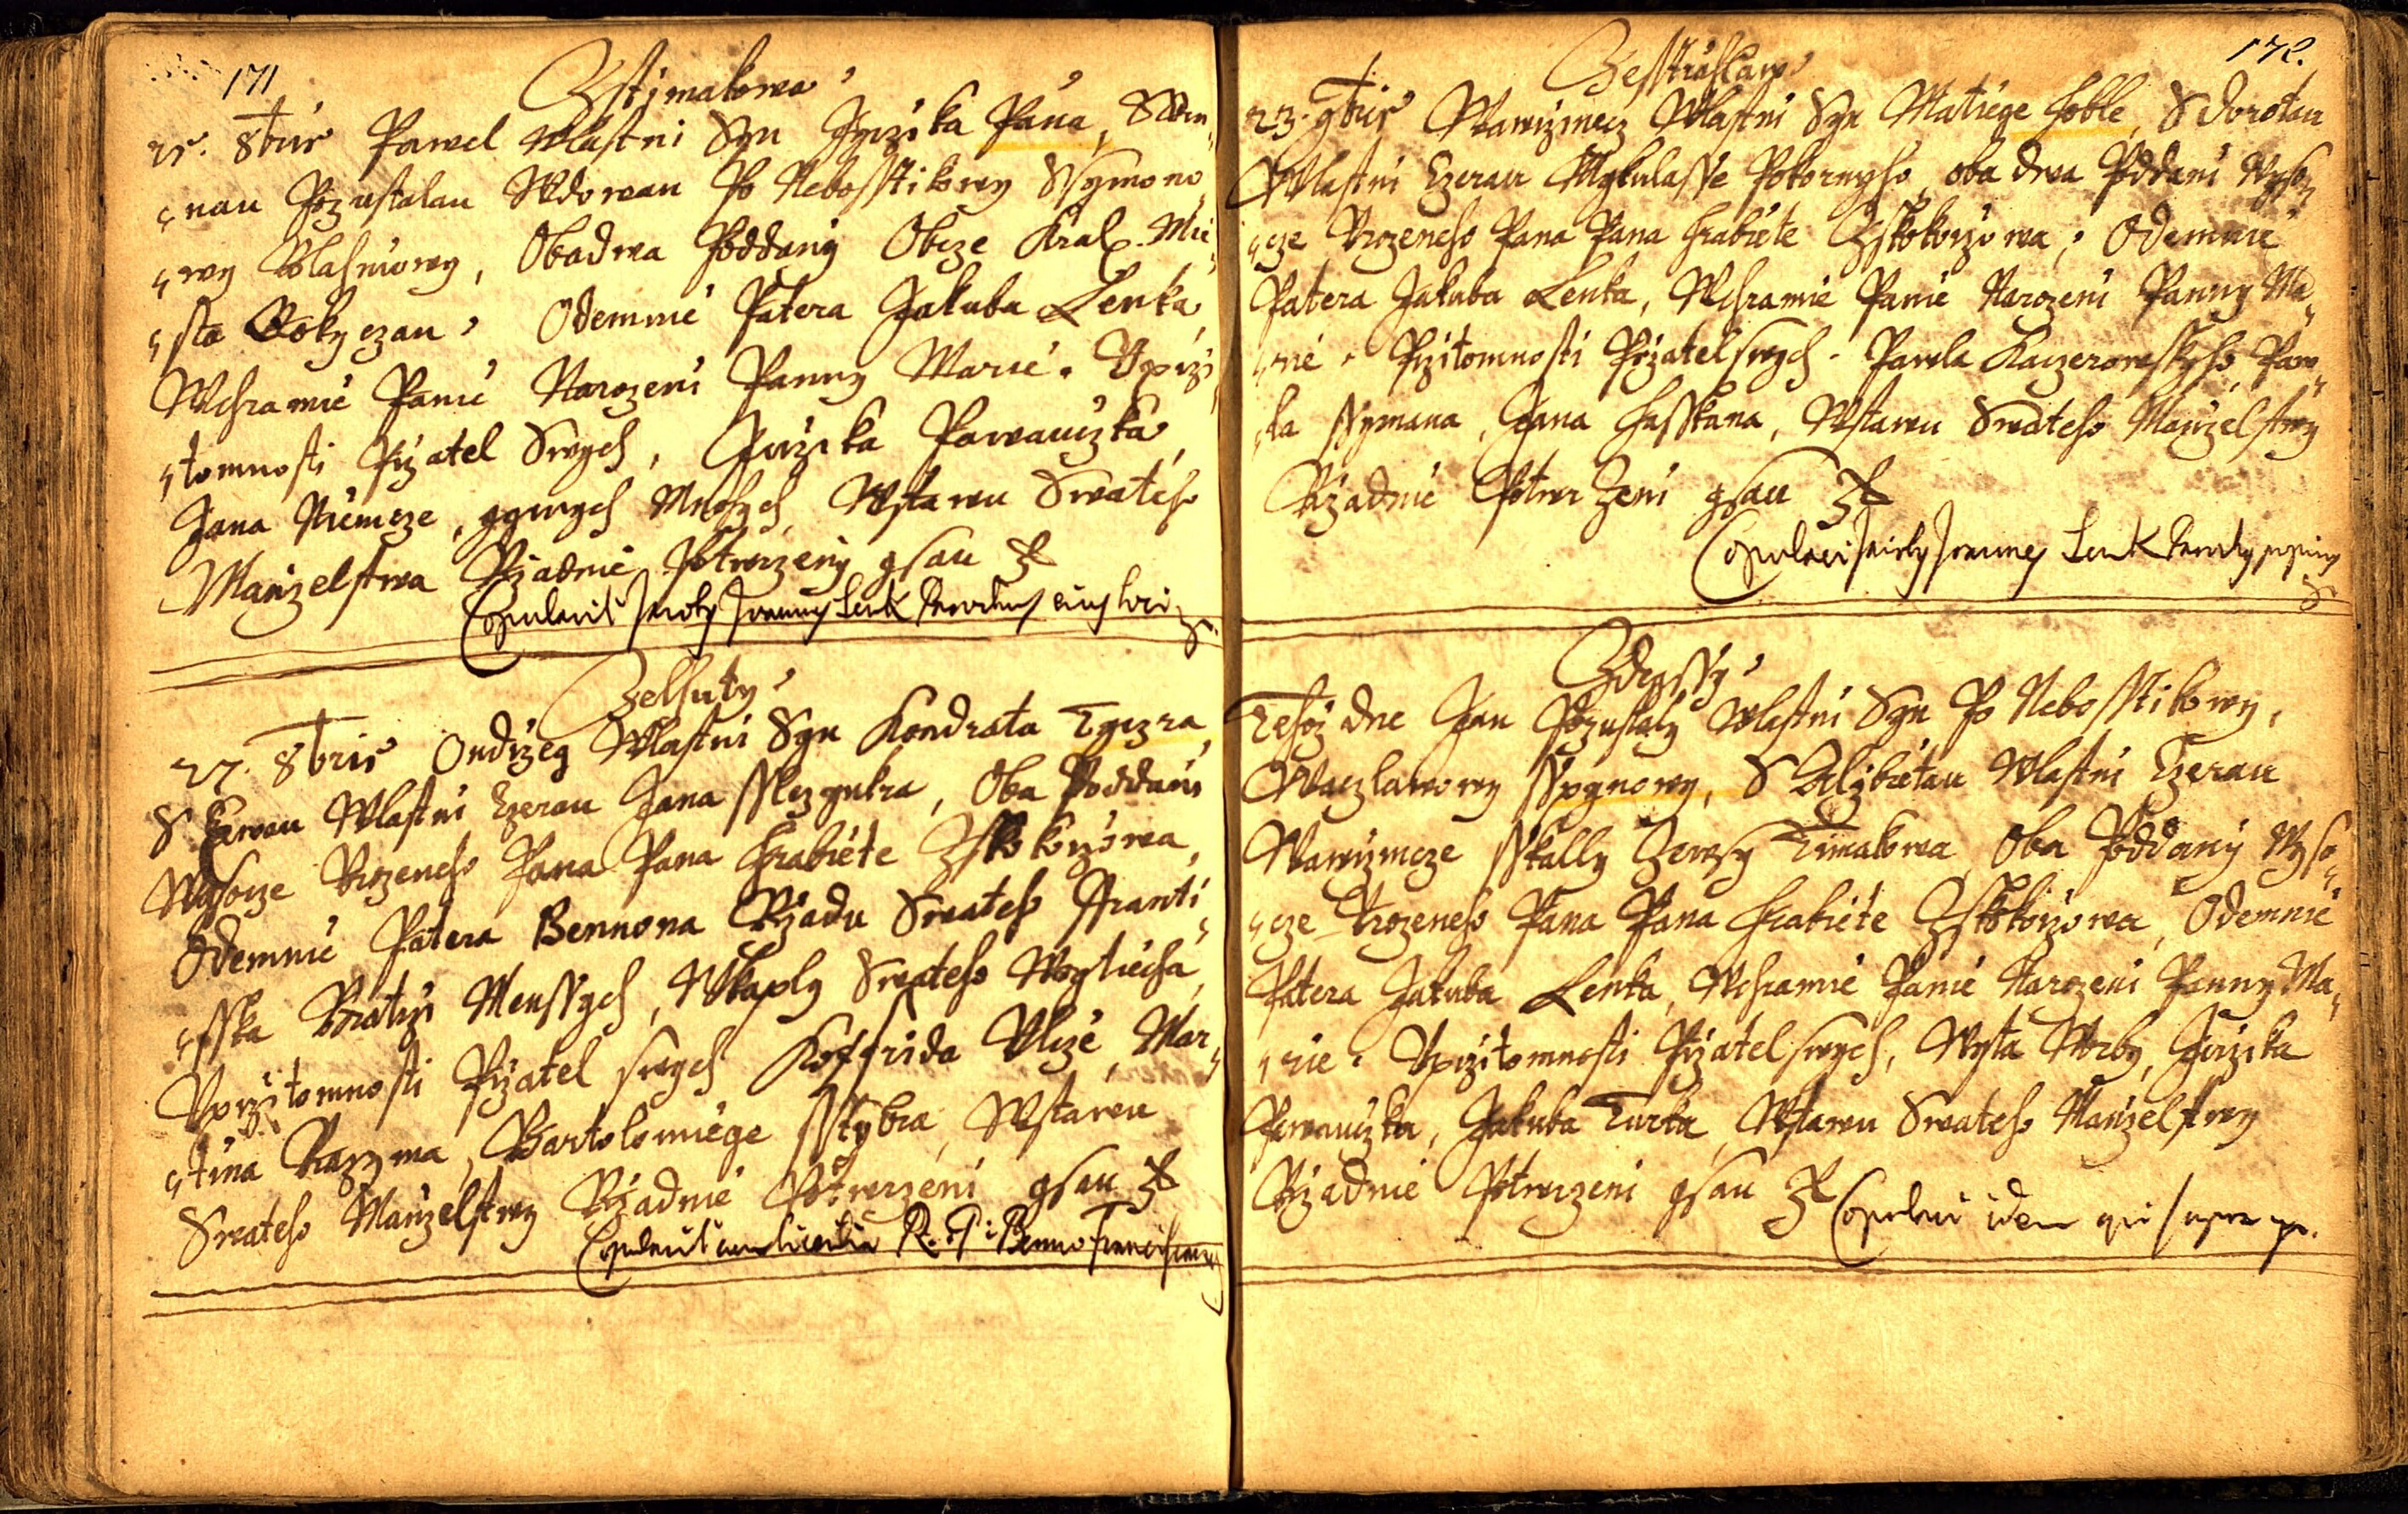 171
Zstimakowa
25. 8bris Pawel Wlastni Syn Girzika Pána, SAnn
nau Pozustalau Wdowau Po Nebosstikowy Ssymono
wy Wlasniowy, Obadwa Poddany Obcze Kral. Mie
sta Rokyczan, Odemnie Patera Jakuba Lenka
Wchramie Panie Narozeni Panny Marie. Vprzi
tomnosti Przatel Swych, Girzika Pawauczka,
Jana Niemcze, gginych Mnohych, Wstawu Swateho
Manzelstwa Rzadnie Potwrzeny gsau
Copulavit Jacobus Joannes Lenk Parochus eius loci
Zelhuty
27. 8bris Ondrzeg Wlastni Syn Kondrata Tgczra
S Ewau Wlastni Czerau Jana, Oba Poddani
Wysocze Vrozeneho Pana Pana Hrabiete Zskokorzowa,
Odemnie Patera Bennona Rzadu Swateho Ffranti
sska Bratrzi Menssych, Wkaply Swateho Wogtiecha
Vprzitomnosti Przatel swych Koffrida Vlcze, Mar
tina, Bartolomiege Sstybra, Wstawu
Swateho Manzelstwy Rzadnie Potwrzeni gsau
Copulavit cum licentia R. P. Benno Franciscanus
172.
Zesstiahlaw
23. 9bris Wawrzinecz Wlastni Syn Matiege Hoble, S Dorotau
Wlastni Czerau Mykulasse Pokornyho, oba dwa Poddani Wyso
cze Vrozeneho Pana Pana Hrabiete Zskokorzowa, Odemnie
Patera Jakuba Lenka, Wchramie Panie Narozeni Panny Ma
rie. Przitomnosti Przatel swych. Pawla Kaczerowskyho, Paw
la Ssymana, Jana Hasskana, Wstawu Swateho Manzelstwy
Rzadnie Potwrzeni gsau
Copulavi Jacobus Joannes Lenk Parochus
Zdegssy
Tehoz dne Jan Pozustaly Wlastni Syn Po Nebosstikowy,
Waczlawowy Sspgnowy, S Alzbietau Wlastni Czerau
Wawrzincze Sskally Zewsy Timakowa, Oba Poddany Wyso
cze Vrozeneho Pana Pana Hrabiete Zskokorzowa, Odemnie
Patera Jakuba Lenka, Wchramie Panie Narozeni Panny Ma
rie. Vprzitomnosti Przatel swych, Wyta Wrby, Girzika
Pawauczka, Jakuba Turka, Wstawu Swateho Manzelstwy
Rzadnie Potwrzeni gsau Copulavi idem qui supra